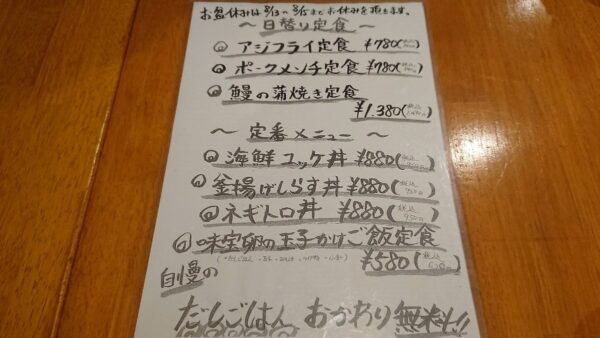 お盆休みは8/13〜8/15までお休みを頂きます。
〜日替り定食〜
アジフライ定食 ¥780(税込
ポークメンチ定食 ¥780(税込
鰻の蒲焼き定食
¥1.380(税込
〜 定番メニュー 〜
海鮮ユッケ丼 ¥880(税込 950円
釜揚げしらす丼 ¥880(税込 950円
ネギトロ丼 ¥880(税込 950円
味宝卵の玉子かけご飯定食
¥580(税込
自慢の
だしごはん おかわり無料!!